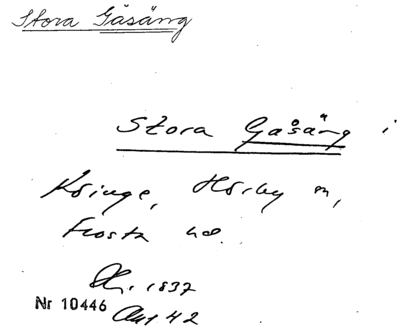 Stora Gåsäng
Stora Gåsäng i
Köinge, Hörby sn,
Frosta hd.
1837
Nr 10446 Akt 42